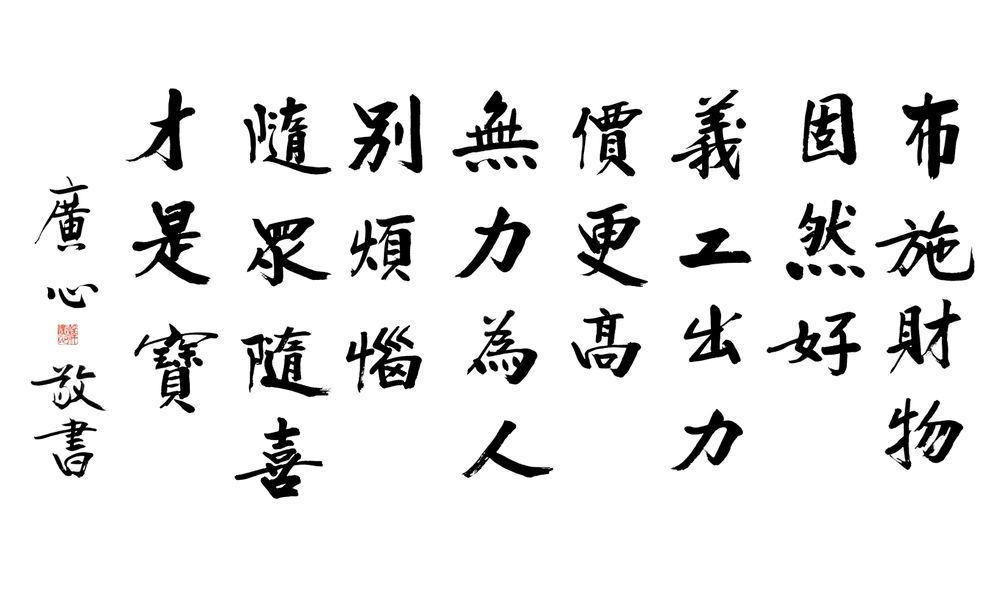 布施財物
固然好
義工出力
價更高
無力為人
別煩惱
隨眾隨喜
才是寶
廣心
敬書